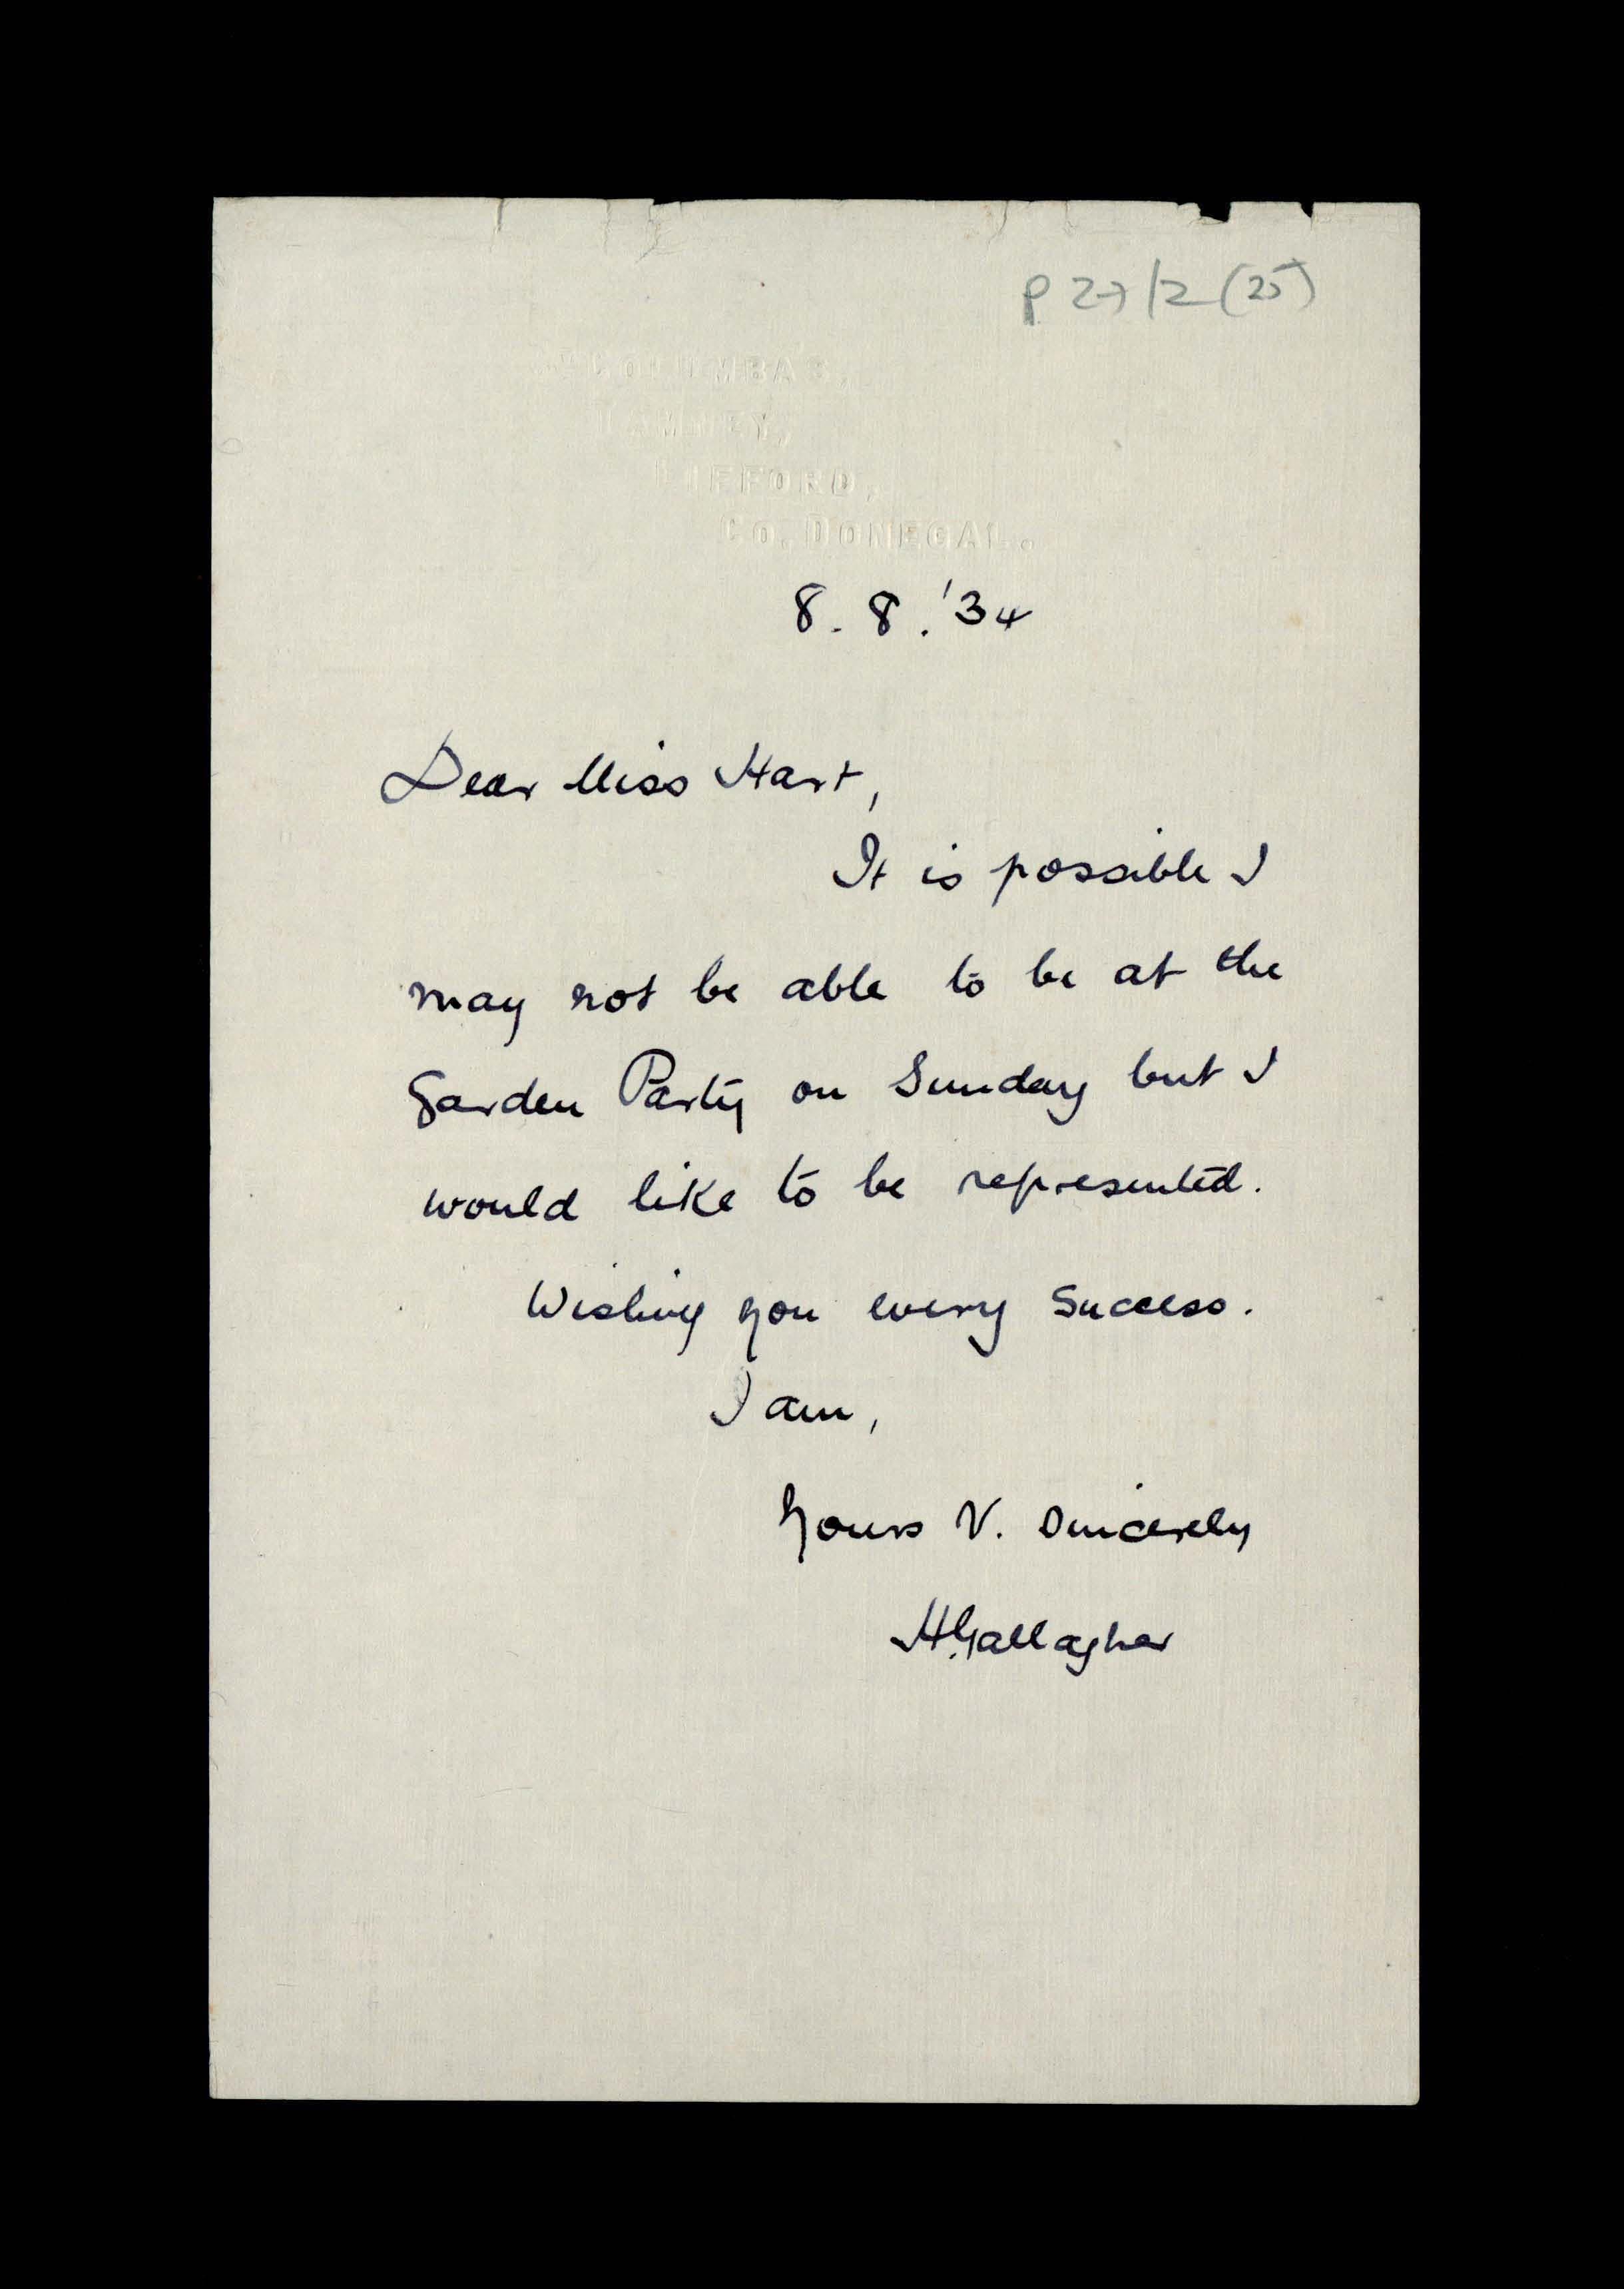 P27/2(25)
St COLUMBA'S,
LIFFORD,
CO. DONEGAL.
8.8.'34
Dear Miss Hart,
It is possible I
may not be able to be at the
Garden Party on Sunday but I
would like to be represented.
Wishing you every success.
I am,
Yours V. Sincerely
H.Gallagher